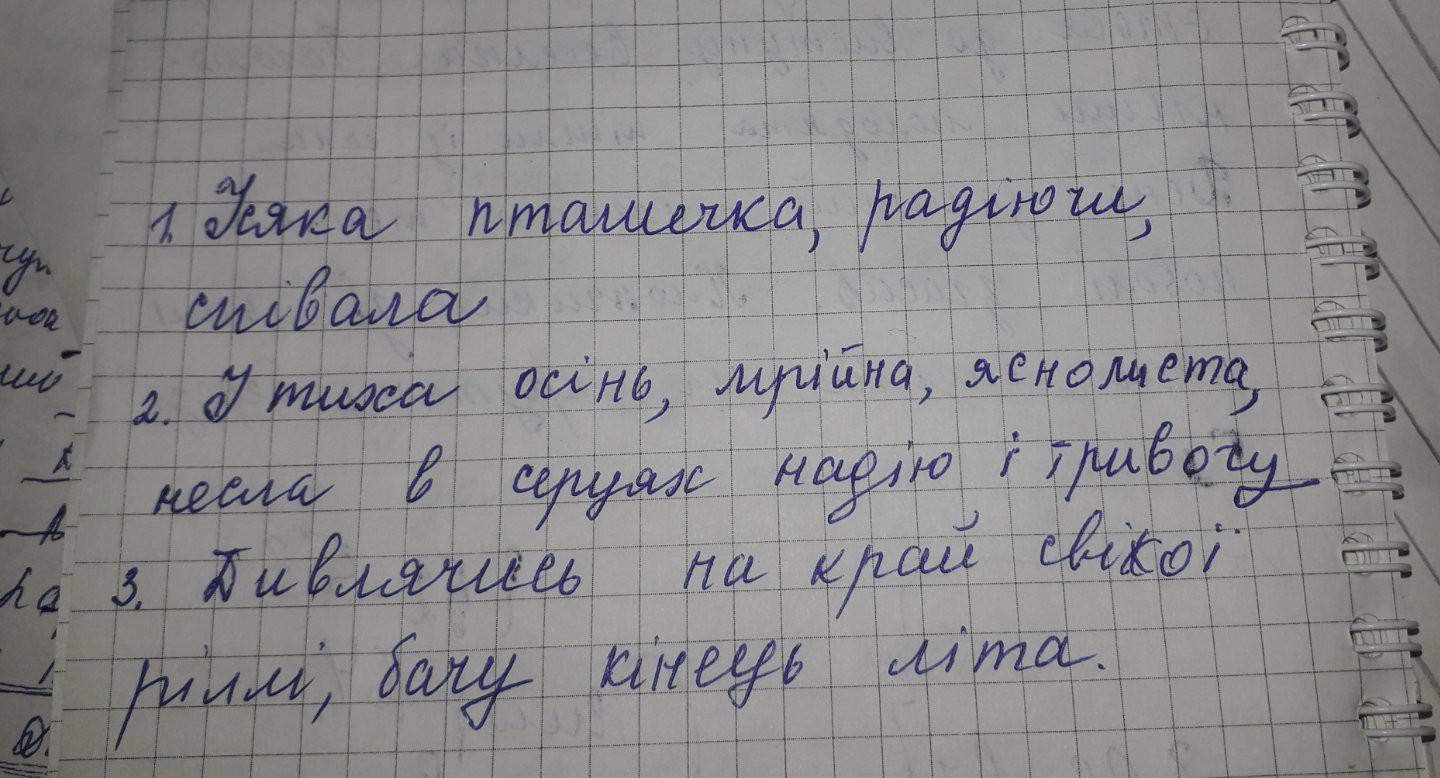 1. Усяка пташечка, радіючи,
співала
2. І тиха осінь, мрійна, яснолиста,
несла в серцях надію і тривогу
3. Дивлячись на край свіжої
ріллі, бачу кінець літа.